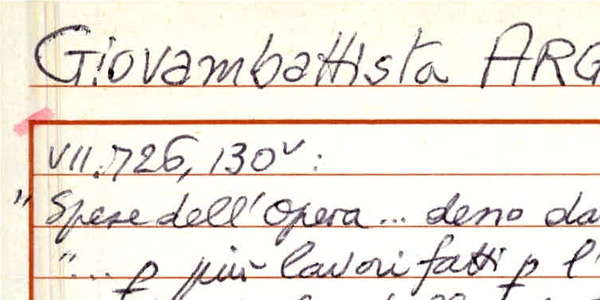 Giovambattista ARG
VII.726, 130v:
" Spese dell'Opera... deno da
"... p più lavori fatti p l'